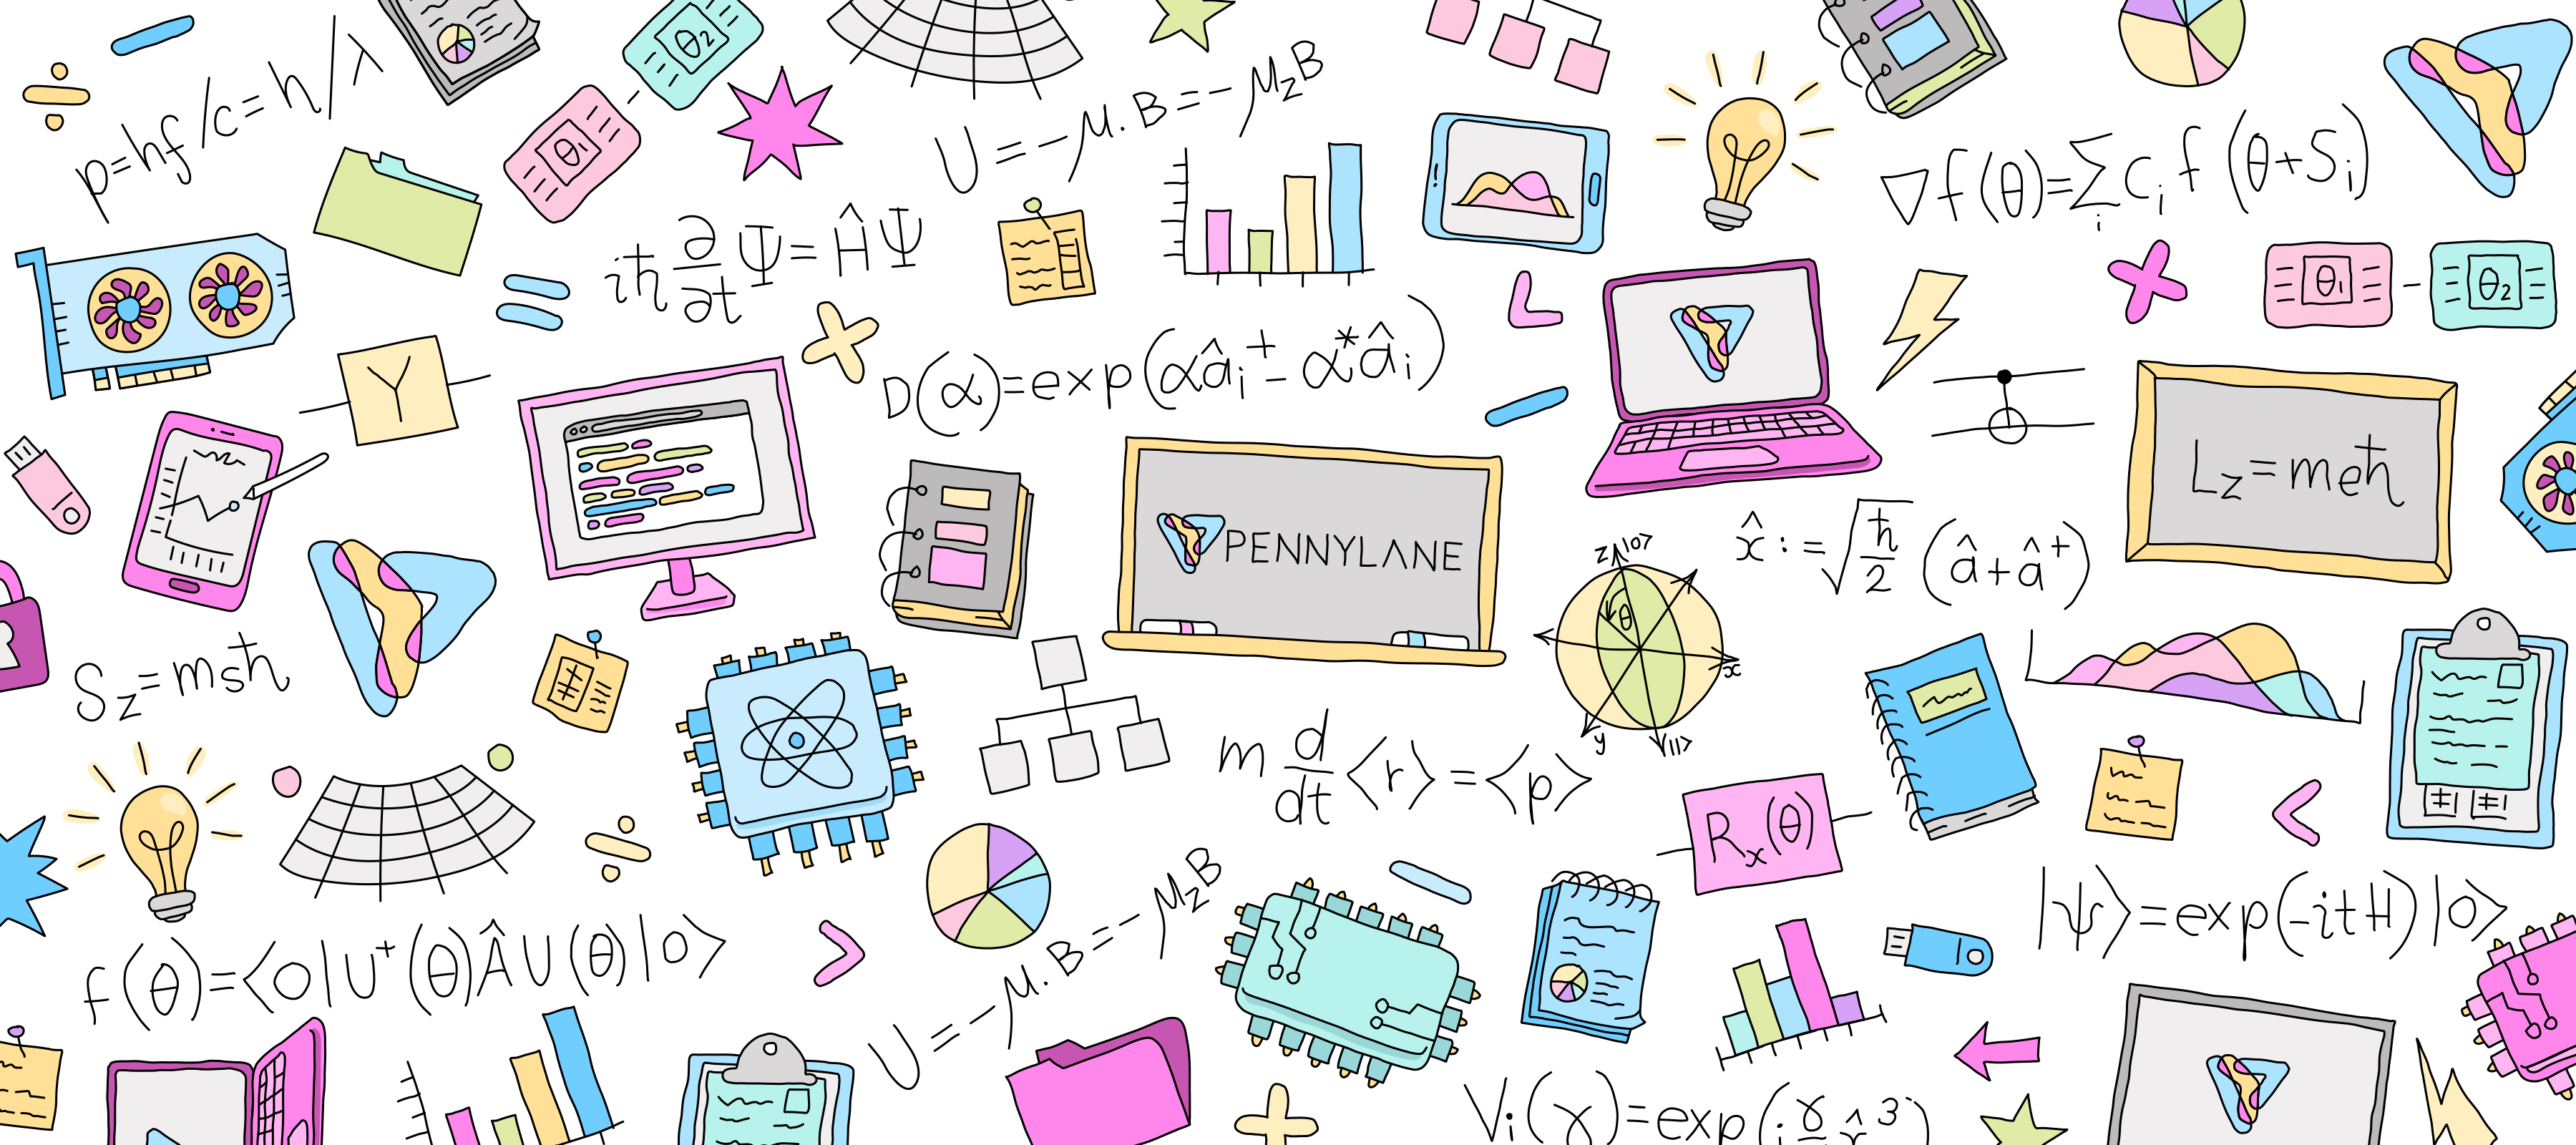 p=hf/c=h/λ
θ₁
θ₂
U=-μ.B=-μ_zB
∇f(θ)=∑_i c_i f(θ+S_i)
iħ ∂/∂t Ψ=ĤΨ
θ₁
θ₂
Y
D(α)=exp(αâ_i⁺-α*â_i)
L_z=meħ
PENNYLANE
x̂:=√ħ/2(â+â⁺)
z |0>
θ
x
y |1>
S_z=msħ
m d/dt<r>=<p>
R_x(θ)
|ψ>=exp(-itH)|0>
f(θ)=<0|U⁺(θ)ÂU(θ)|0>
U=-μ.B=-μ_zB
V_i(γ)=exp(i γ x̂³)